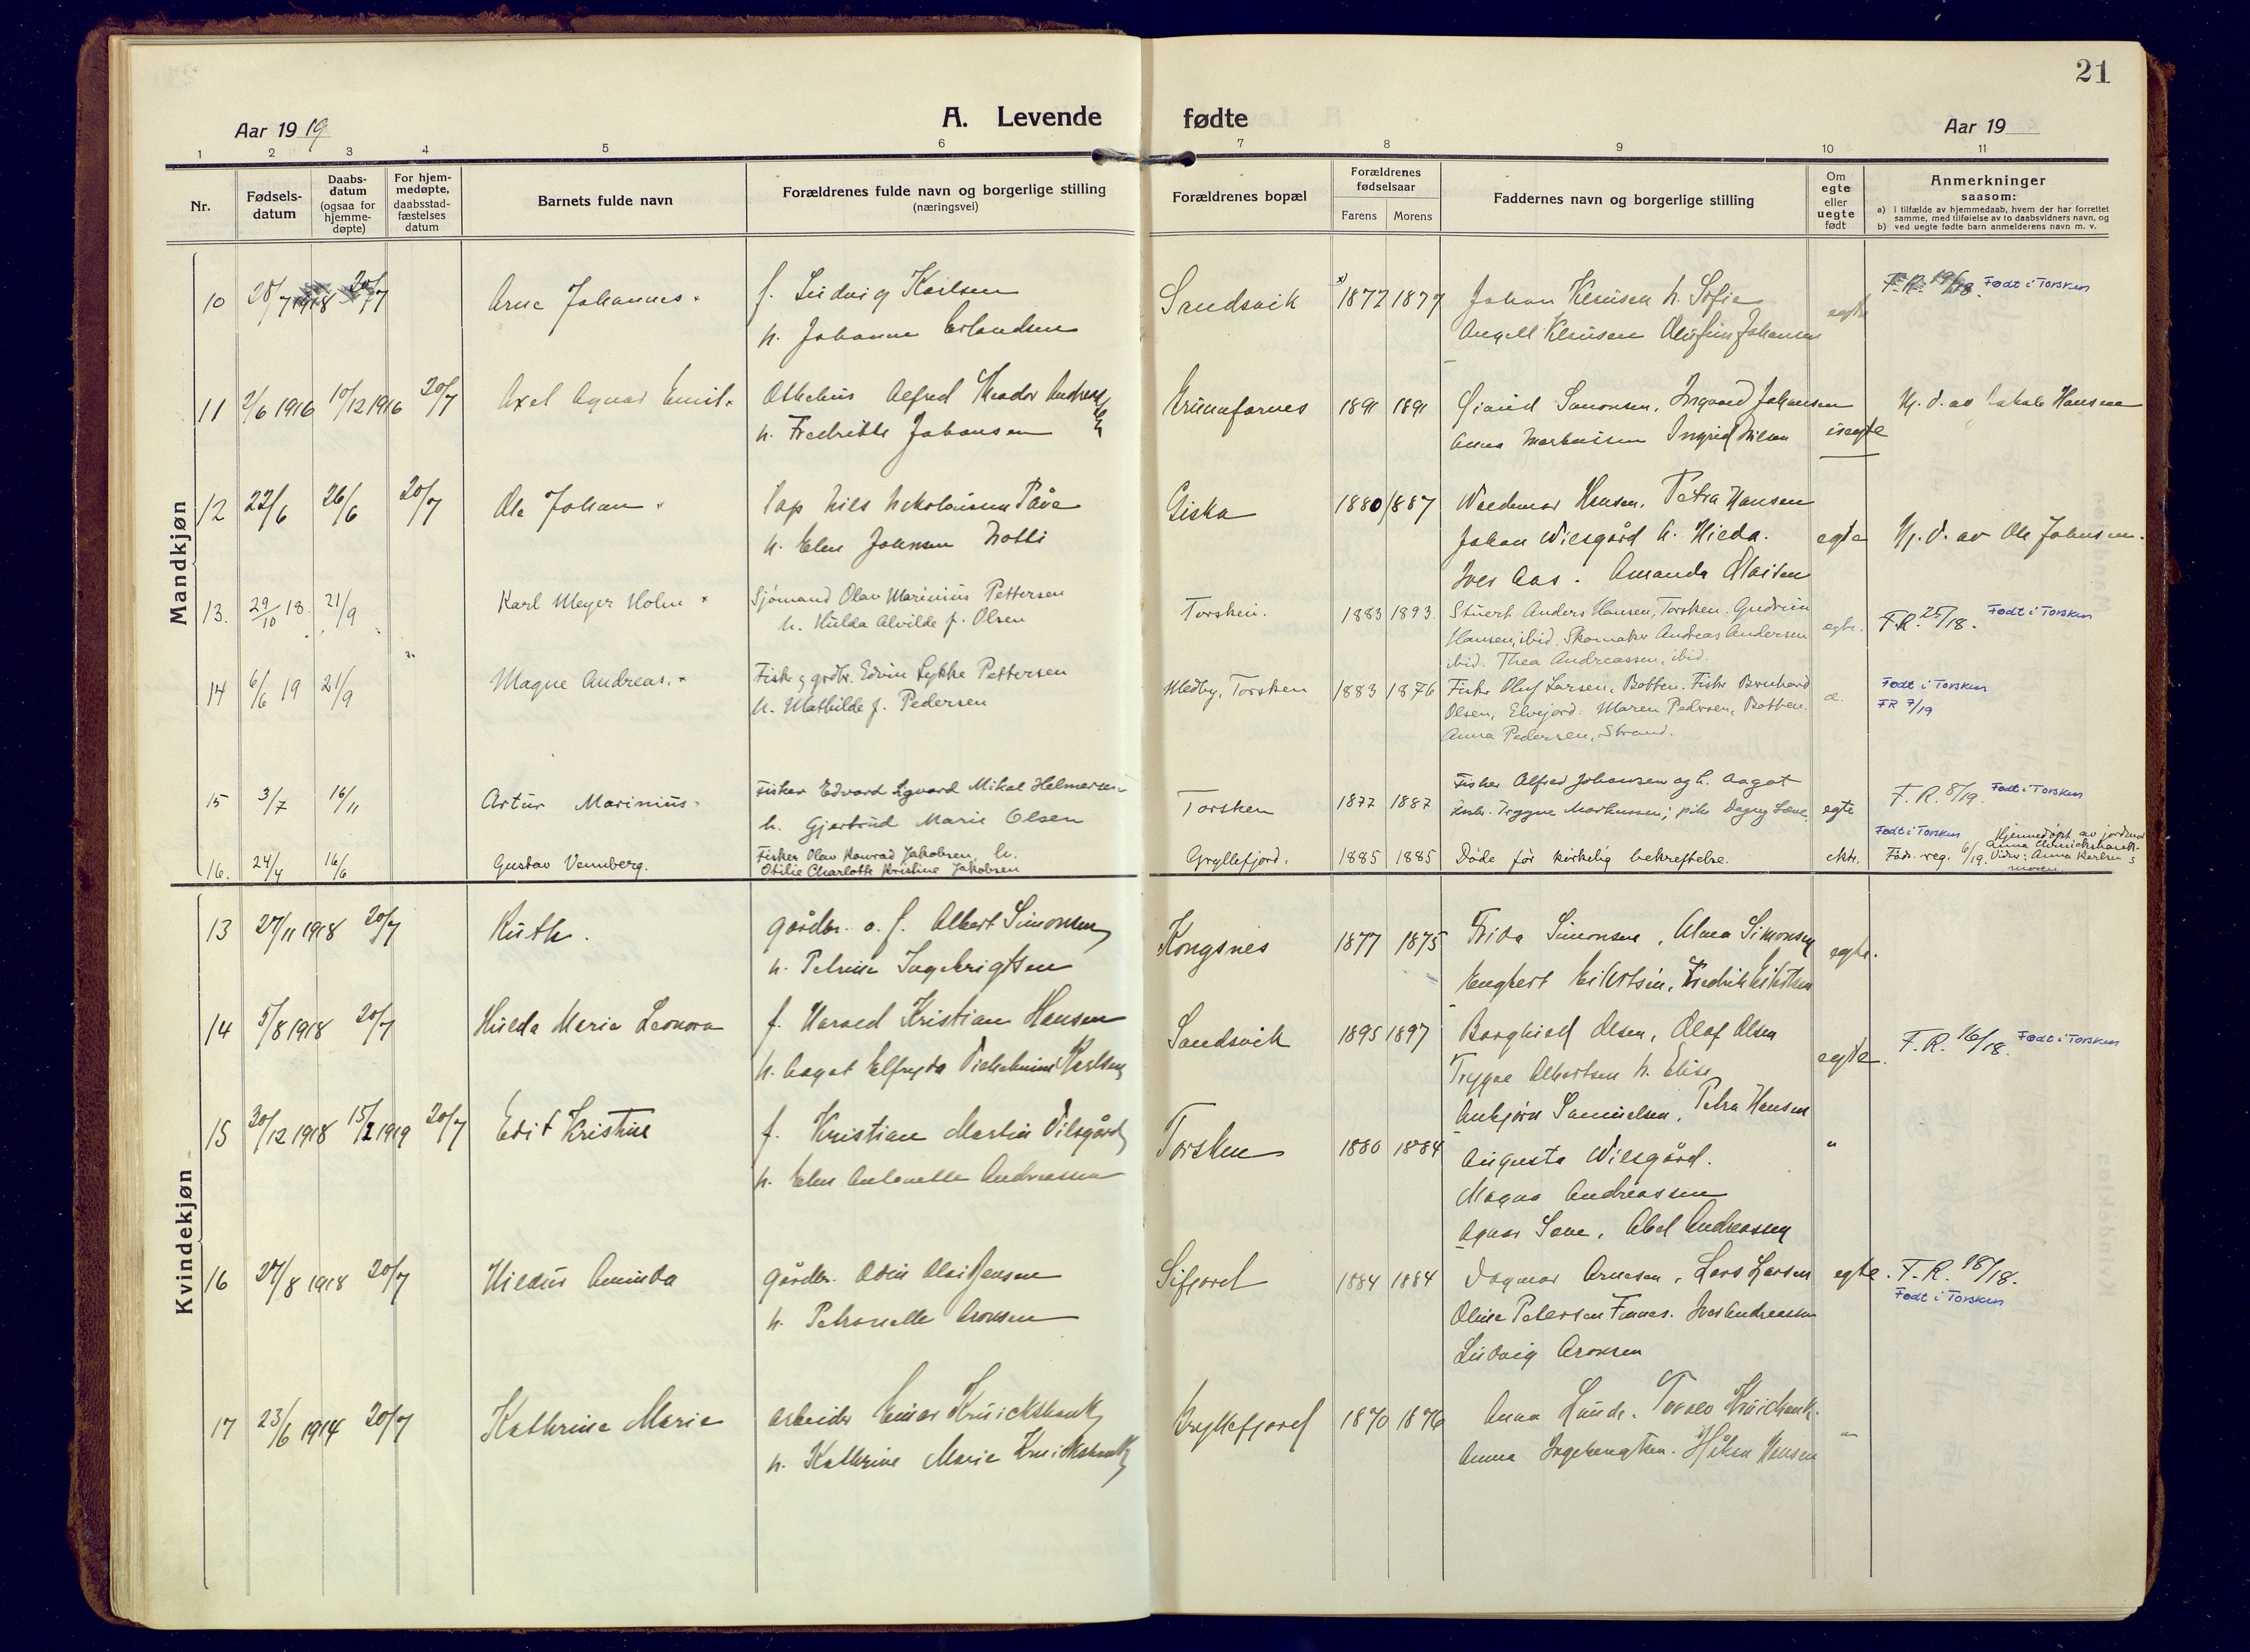 21
A. Levende fødte
Aar 1919
Aar 19
1 2 3 4 5 6 7 8 9 10 11
Nr.
Fødsels-
datum
Daabs-
datum
(ogsaa for
hjemme-
døpte)
For hjem-
medøpte,
daabsstad-
fæstelses
datum
Barnets fulde navn
Forældrenes fulde navn og borgerlige stilling
(næringsvei)
Forældrenes bopæl
Forældrenes
fødselsaar
Farens Morens
Faddernes navn og borgerlige stilling
Om
egte
eller
uegte
født
Anmerkninger
saasom:
a) i tilfælde av hjemmedaab, hvem der har forrettet
samme, med tilføielse av to daabsvidners navn, og
b) ved uegte fødte barn anmelderens navn m. v.
Mandkjøn
10 28/7 1918 20/7 Arne Johannes f. Ludvig Karlsen Sandsvik 1872 1877 Johan h. Sofie egte F.R. 19/18. Født i Torsken
h. Johanne Erlandsen Angell Johansen
11 2/6 1916 10/12 1916 20/7 Axel Agnar Emil Alfred Teodor Andreassen 1891 1891 Simonsen, Ingvard Johansen uegte Hj. d. av Hansen
h. Fredrikke Johansen Anna Ingrid Nilsen
12 22/6 26/6 20/7 Ole Johan Lap Nils Nikolaisen Påve Giska 1880 1887 Valdemar Hansen, Petra Hansen
h. Elen Johnsen Johan Wilsgård h. Hilda. egte Hj. d. av Ole Johnsen.
Aas. Amanda
13. 29/10 18. 21/9 Karl Meyer Holm Sjømand Olav Marinius Pettersen Torsken. 1883 1893. Stuert Anders Hansen, Torsken. Gudrun egte. F.R. 25/18. Født i Torsken
h. Hulda Alvilde f. Olsen Hansen, ibid. Skomaker Andreas Andersen
ibid. Thea Andreassen, ibid.
14 6/6 19 21/9 Magne Andreas. Fisker g grdbr. Edvin Lykke Pettersen Medby, Torsken 1883 1876 Fisker Oluf Larsen, Botten. Fisker Bernhard æ. Født i Torsken
h. Mathilde f. Pedersen Olsen, Elvejord. Maren Pedersen, Botten. FR 7/19
Anna Pedersen, Strand.
15 3/7 16/11 Artur Marinius Fisker Edvard Sigvard Mikal Helmersen Torsken 1877 1887 Fisker Alfred Johansen og h. Aagot egte F.R. 8/19. Født i Torsken
h. Gjertrud Marie Olsen Trygve Markussen; pike Dagny Lane.
16. 24/4 16/6 Gustav Vennberg. Fisker Olav Konrad Jakobsen, h. Gryllefjord. 1885 1885 Døde før kirkelig bekreftelse. ekte. Født i Torsken Hjemmedøpt av jordmor
Otilie Charlotte Kristine Jakobsen Føds. reg. 6/19. Anna Cruickshank. Vidner: Anna Karlsen &
moren.
Kvindekjøn
13 27/11 1918 20/7 Ruth. gårdbr. o. f. Albert Simonsen Kongsnes 1877 1875 Frida Simonsen, Alma Simonsen egte.
h. Petrine Ingebrigtsen Engbert Eilertsen, Fredrik Eilertsen
14 5/8 1918 20/7 Hilda Marie Leonora f. Harald Kristian Hansen Sandsvik 1895 1897 Borghild Olsen, Olaf Olsen egte. F.R. 16/18. Født i Torsken
h. Aagot Elfryda Vilhelmine Karlsen Trygve Albertsen h. Elise
15 30/12 1918 15/2 1919 20/7 Edit Kristine f. Kristian Martin Vilsgård Torsken 1880 1884 Anbjørn Samuelsen, Petra Hansen "
h. Elen Antonette Andreassen Augusta Wilsgård.
Magna Andreassen
Agnes Lane, Abel Andreassen
16 27/8 1918 20/7 Hildur Aminda gårdbr. Odin Olai Jensen Sifjord 1884 1884 Dagmar Arnesen, Lars Larsen egte. F.R. 18/18.
h. Petronelle Aronsen Oline Petersen Finnes. Andreassen Født i Torsken
Ludvig Aronsen
17 23/6 1914 20/7 Kathrine Marie arbeider Einar Kruickshank Gryllefjord 1870 1876 Anna Lunde. Kruickshank. "
h. Kathrine Marie Kruickshank Anna Ingebrigtsen. Håken Hansen